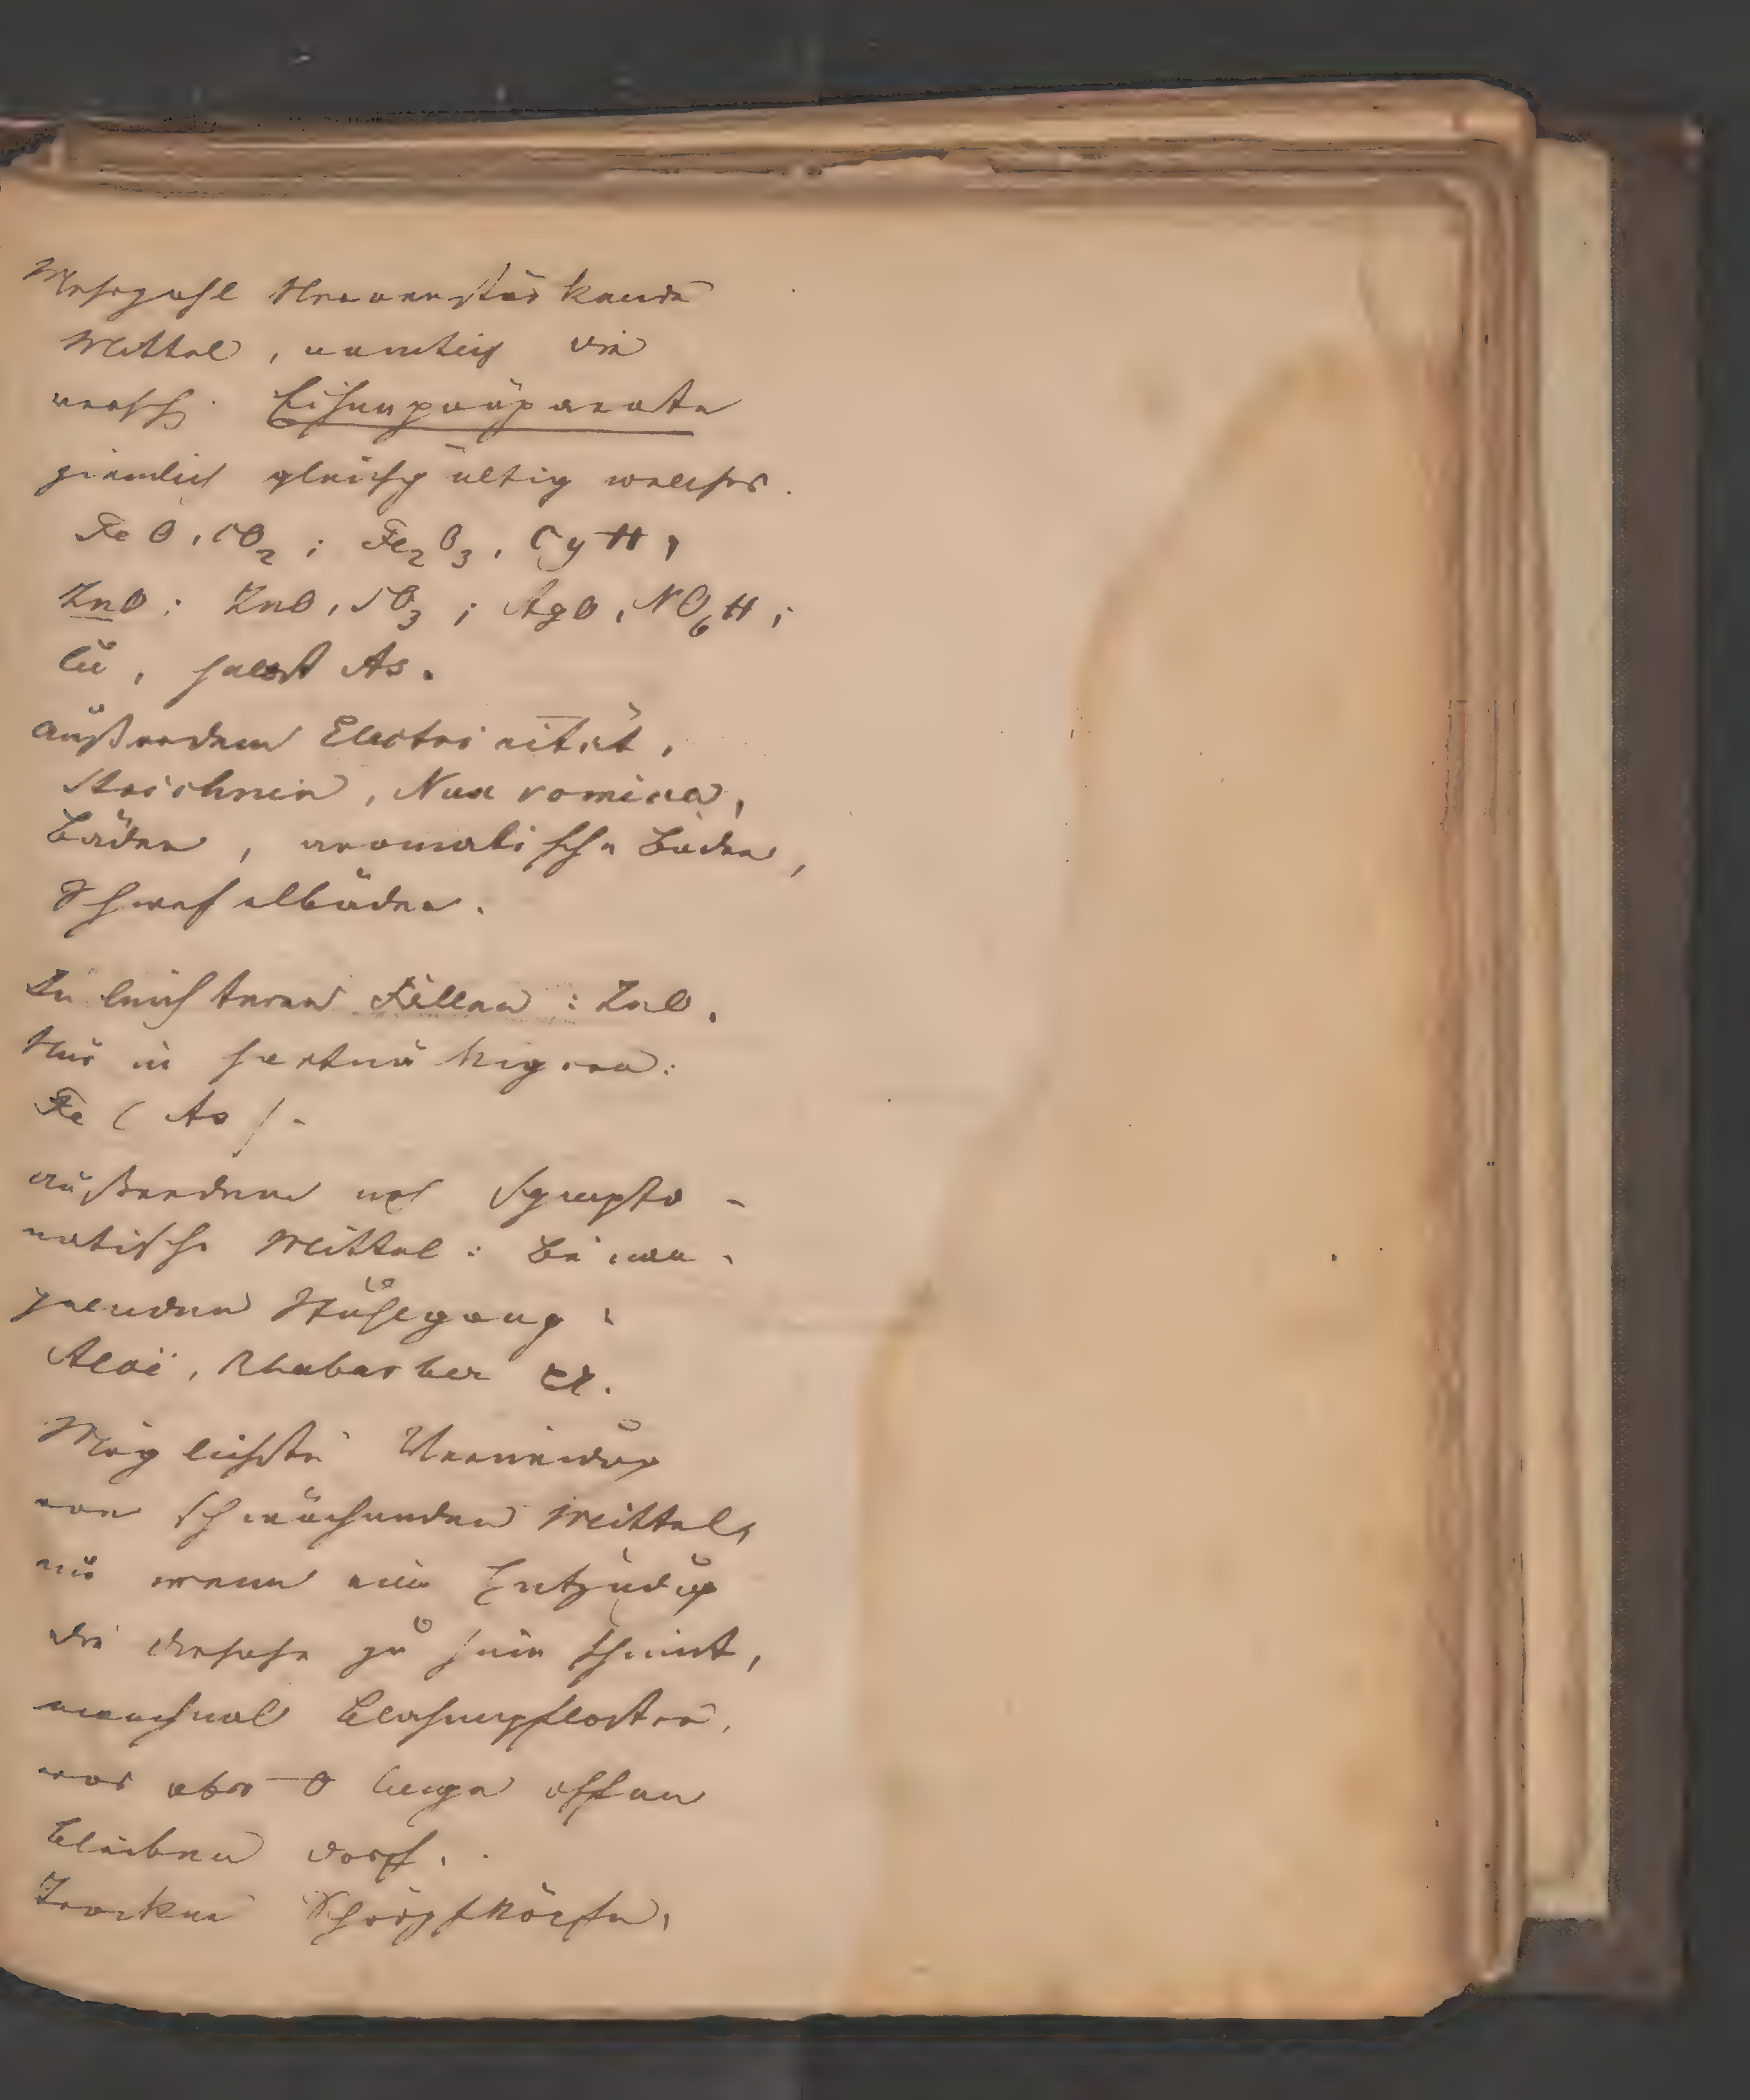 Mehrzahl Nervenstärkende
Mittel, namtlich die
versch. Eisenpräparate
ziemlich gleichgültig welches.
FeO, CO2; Fe2O3, CyH,
ZnO; ZnO, SO3; AgO, NO6H;
Cu, selbst As.
außerdem Electricität,
Strichnin, Nux vomica,
Bäder, aromatische Bäder,
Schwefelbäder.
In leichteren Fällen: ZnO,
Nur in hartnäckigeren:
Fe (As).
außerdem noch Sympto-
matische Mittel: Bei man-
gelnden Stuhlgang:
Aloë, Rhabarber etc.
Möglichste Vermeidung
von schwächenden Mitteln,
nur wenn eine Entzündung
die Ursache zu sein scheint,
manchmal Blasenpflaster,
was aber 0 lange offen
bleiben darf.
Trockne Schröpfköpfe,